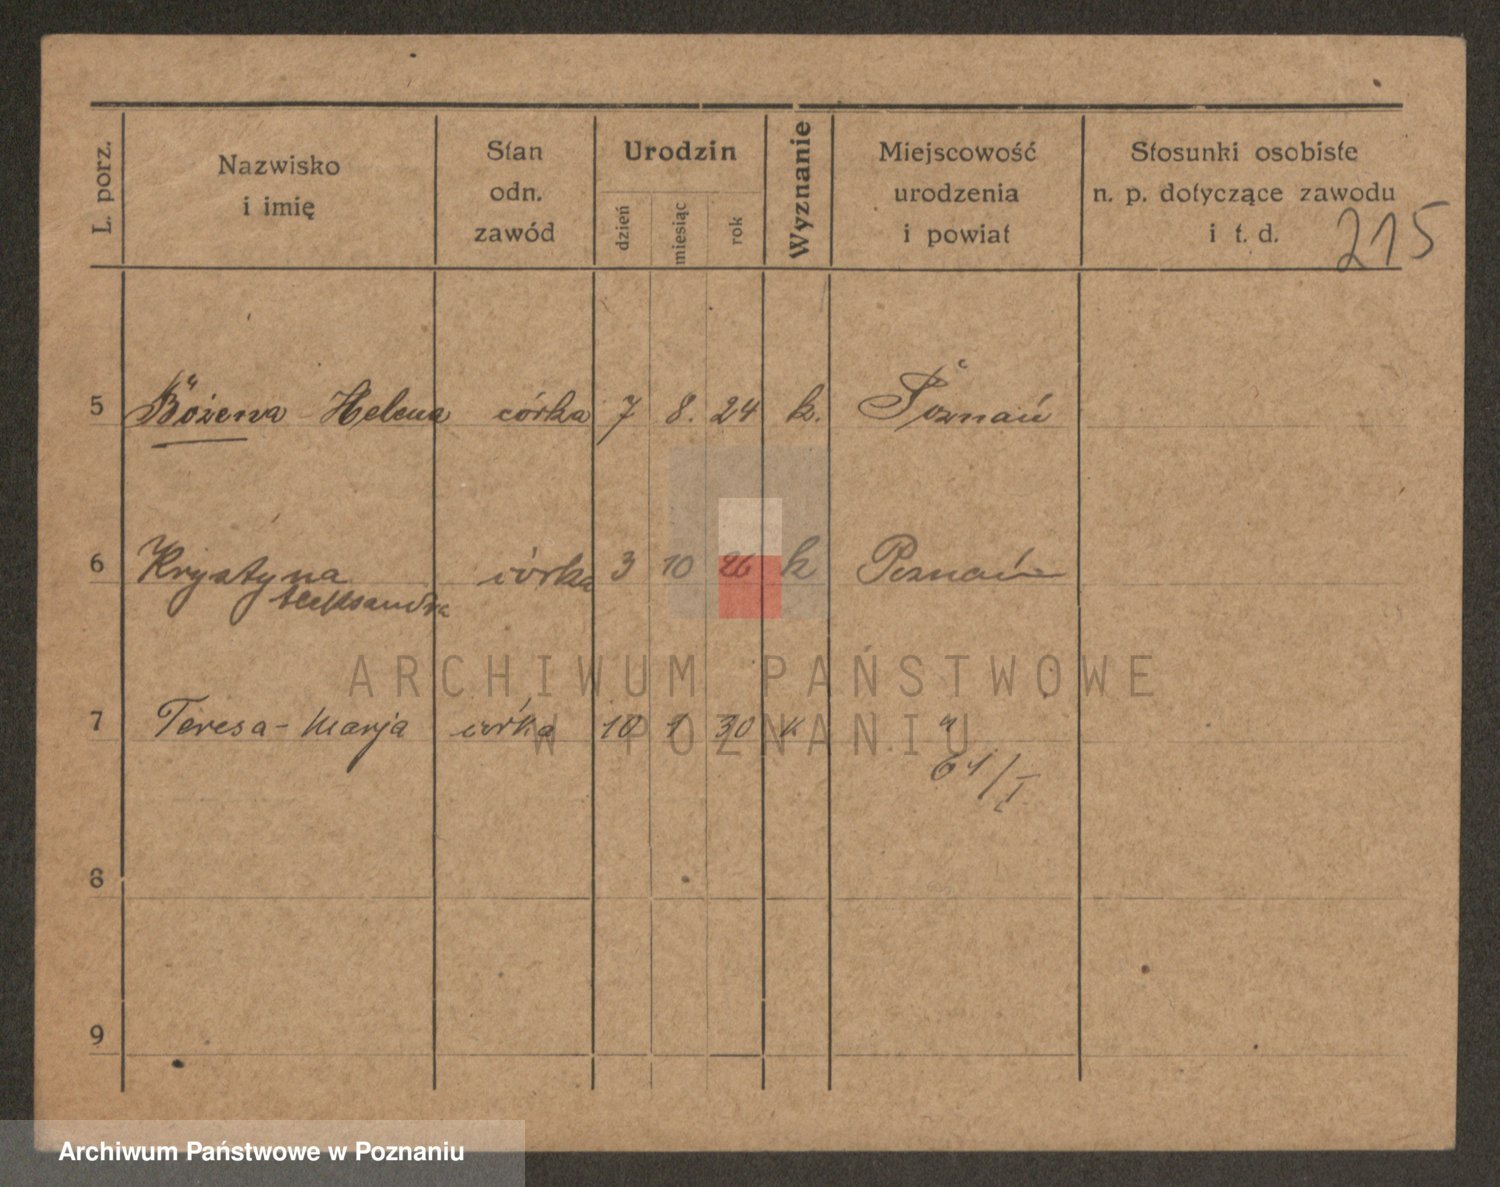 L. porz.
Nazwisko
i imię
Stan
odn.
zawód
Urodzin
dzień
miesiąc
rok
Wyznanie
Miejscowość
urodzenia
i powiat
Stosunki osobiste
n. p. dotyczące zawodu
i t. d.
215
5 Bożena Helena córka 7 8. 24 k. Poznań
6 Krystyna córka 3 10 26 k Poznań
Aleksandra
ARCHIWUM PAŃSTWOWE
7 Teresa-Marja córka 10 1 30 k "
W POZNANIU
61/I
8
9
Archiwum Państwowe w Poznaniu